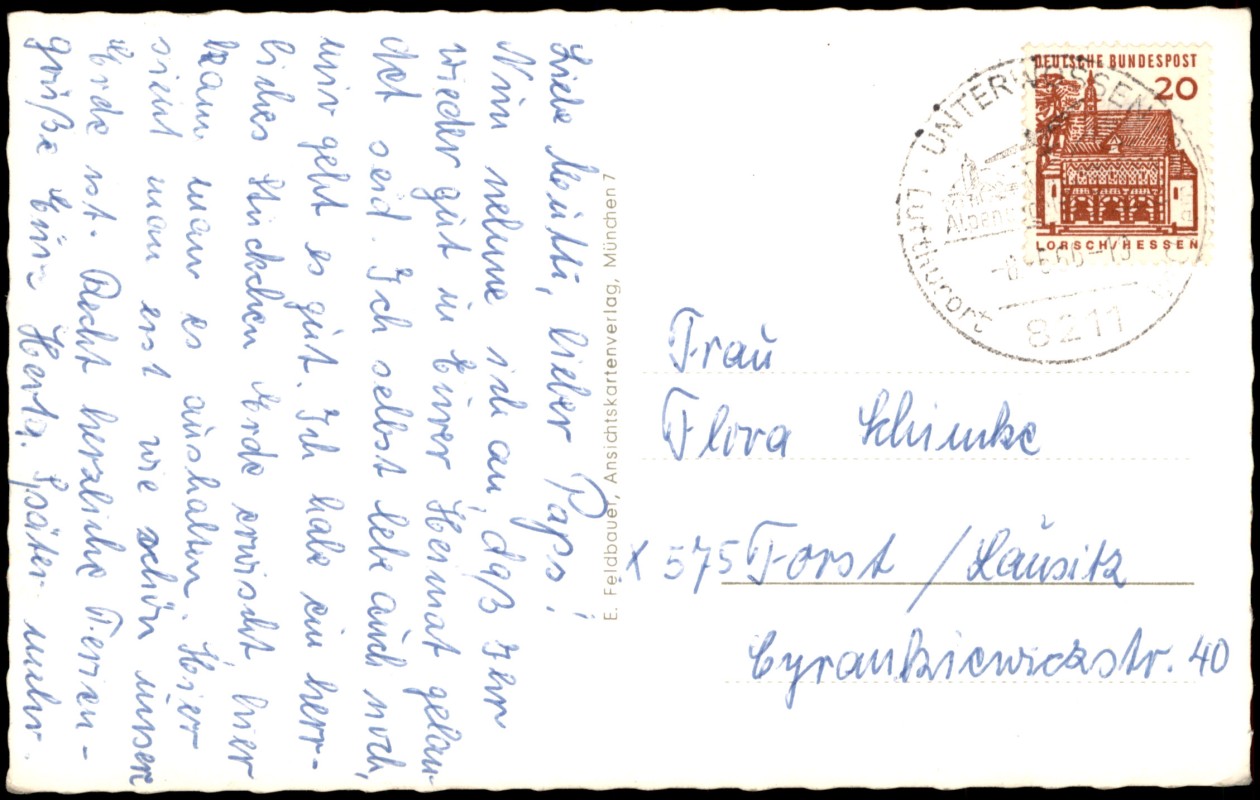 Liebe Mutti, lieber Paps!
Nun nehme ich an, daß Ihr
wieder gut in Eurer Heimat gelan-
det seid. Ich selbst lebe auch noch,
mir geht es gut. Ich habe ein herr-
liches Stückchen Erde erwischt, hier
kann man es aushalten. Hier
sieht man erst wie schön unsere
Erde ist. Recht herzliche Ferien-
grüße Eure Herta. Später mehr.
E. Feldbauer, Ansichtskartenverlag, München 7
DEUTSCHE BUNDESPOST
20
LORSCH/HESSEN
UNTERWÖSSEN
Luftkurort
8211
Frau
Flora Schimke
X 575 Forst / Lausitz
Cyrankiewiczstr. 40